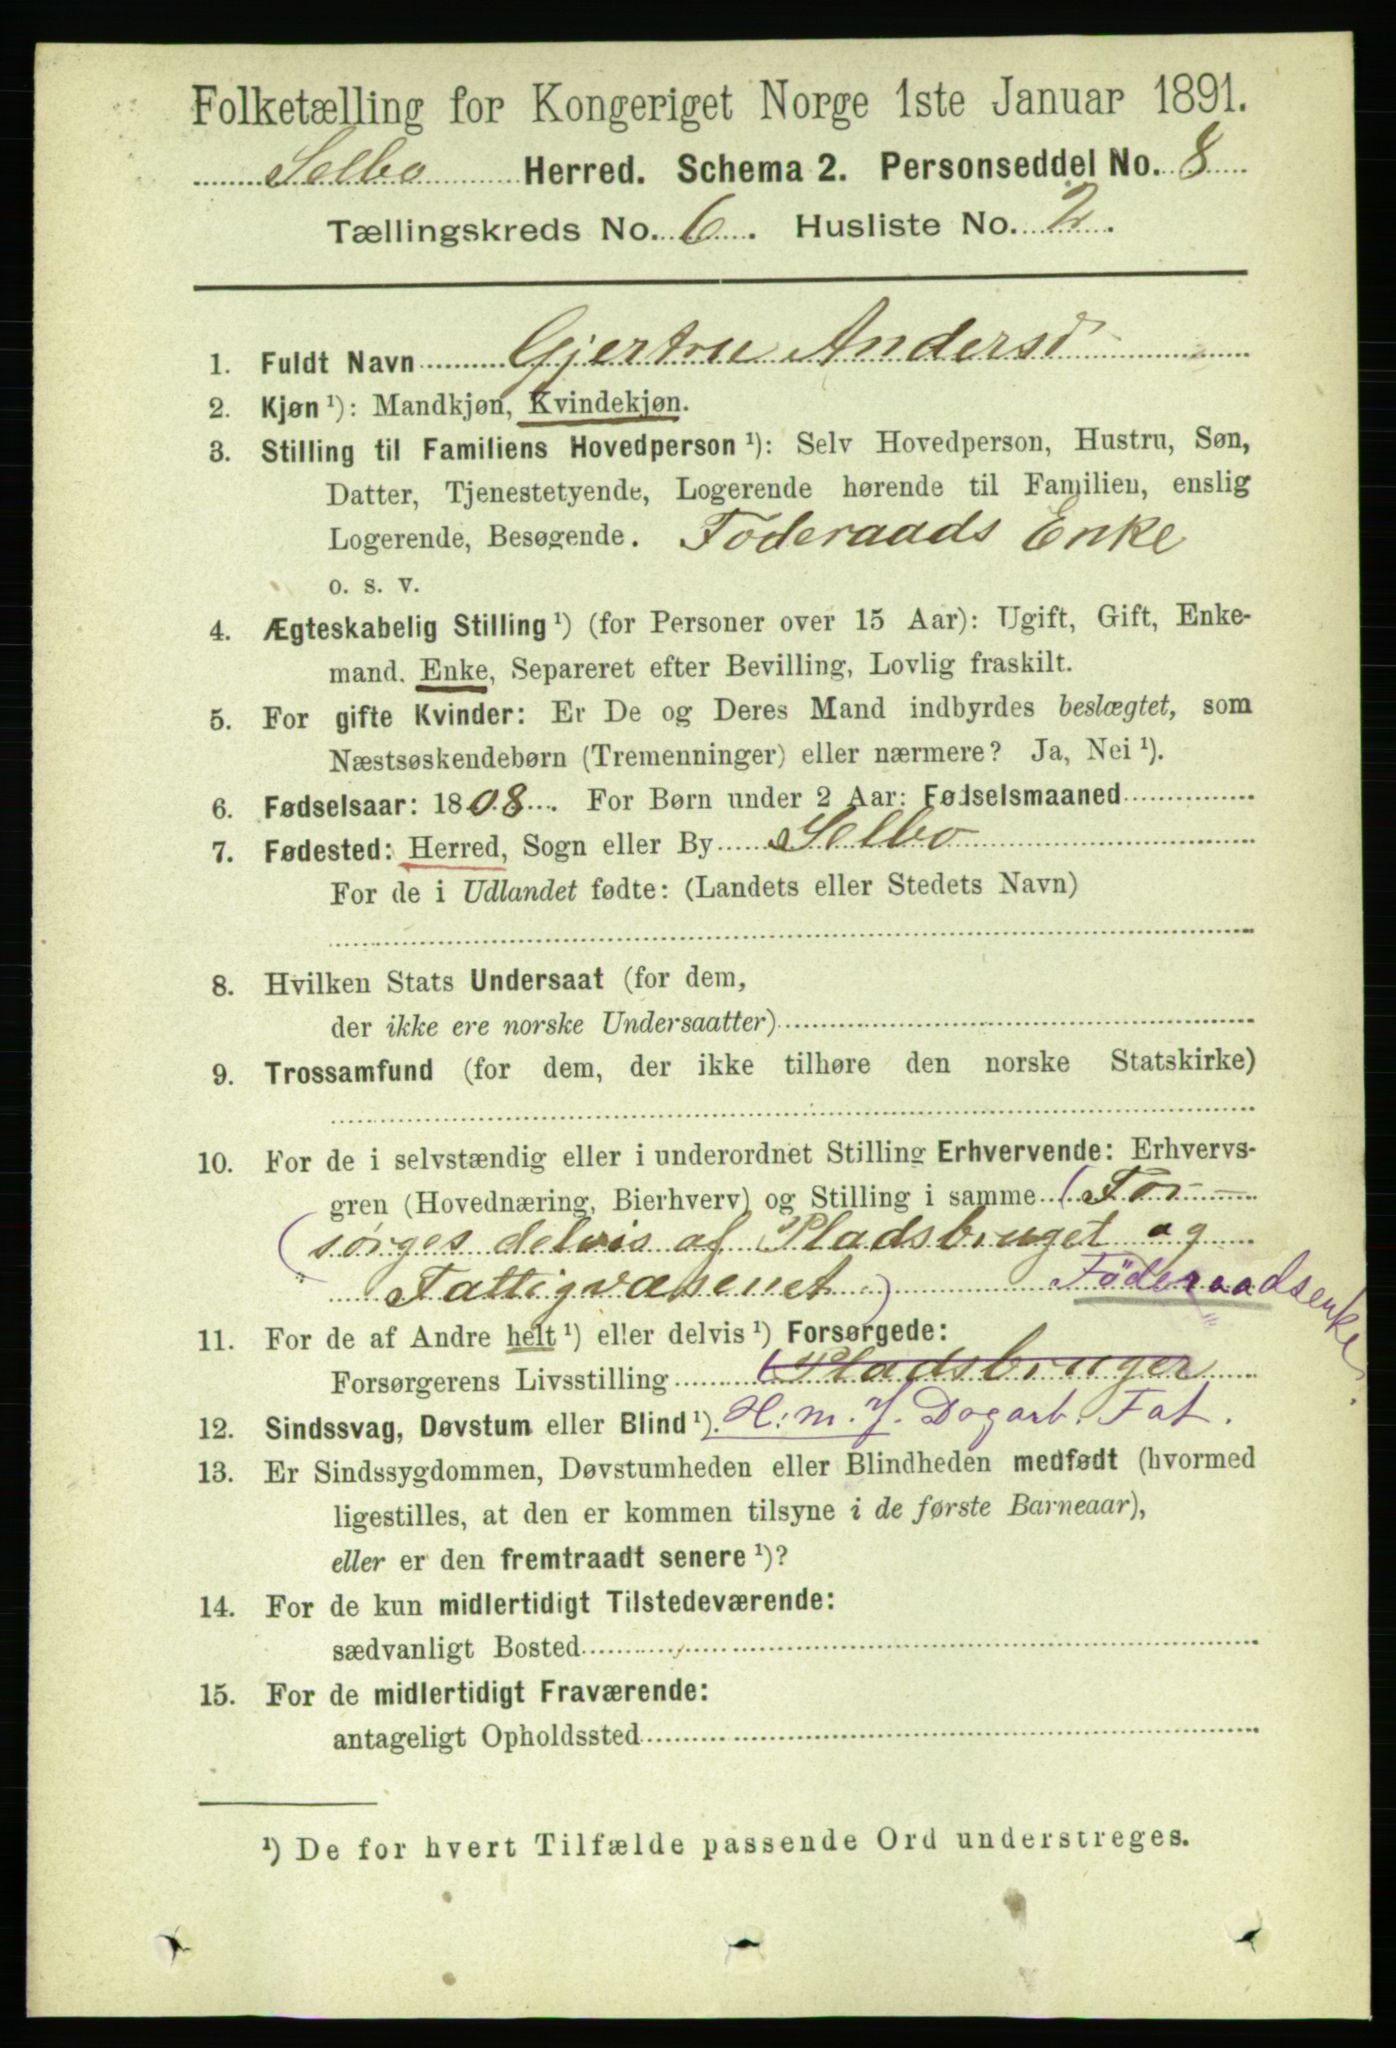 Folketælling for Kongeriget Norge 1ste Januar 1891.
Selbo Herred. Schema 2. Personseddel No. 8
Tællingskreds No. 6. Husliste No. 2.
1. Fuldt Navn Gjertru Andersd
2. Kjøn ¹): Mandkjøn, Kvindekjøn.
3. Stilling til Familiens Hovedperson ¹): Selv Hovedperson, Hustru, Søn,
Datter, Tjenestetyende, Logerende hørende til Familien, enslig
Logerende, Besøgende. Føderaads Enke
o. s. v.
4. Ægteskabelig Stilling ¹) (for Personer over 15 Aar): Ugift, Gift, Enke-
mand. Enke, Separeret efter Bevilling, Lovlig fraskilt.
5. For gifte Kvinder: Er De og Deres Mand indbyrdes beslægtet, som
Næstsøskendebørn (Tremenninger) eller nærmere? Ja, Nei ¹).
6. Fødselsaar: 1808. For Børn under 2 Aar: Fødselsmaaned
7. Fødested: Herred, Sogn eller By Selbo
For de i Udlandet fødte: (Landets eller Stedets Navn)
8. Hvilken Stats Undersaat (for dem,
der ikke ere norske Undersaatter)
9. Trossamfund (for dem, der ikke tilhøre den norske Statskirke)
10. For de i selvstændig eller i underordnet Stilling Erhvervende: Erhvervs-
gren (Hovednæring, Bierhverv) og Stilling i samme (For-
(sørges delvis af Pladsbruget og
Fattigvæsenet) Föderaadsenke.
11. For de af Andre helt ¹) eller delvis ¹) Forsørgede:
Forsørgerens Livsstilling (Pladsbruger
12. Sindssvag, Døvstum eller Blind ¹). H: m. f. Dagarb. Fat.
13. Er Sindssygdommen, Døvstumheden eller Blindheden medfødt (hvormed
ligestilles, at den er kommen tilsyne i de første Barneaar),
eller er den fremtraadt senere ¹)?
14. For de kun midlertidigt Tilstedeværende:
sædvanligt Bosted
15. For de midlertidigt Fraværende:
antageligt Opholdssted
¹) De for hvert Tilfælde passende Ord understreges.